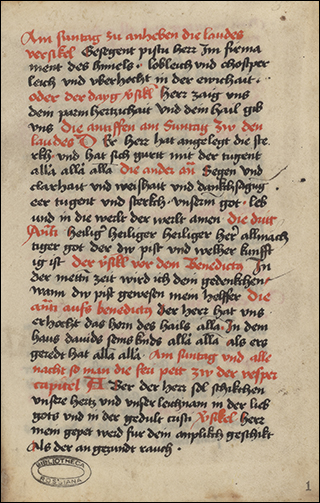 Am suntag zu anheben die laudes
versikel Gesegent pistu herr Im firma
ment des himels · lobleich und chostper
leich und uberhocht in der ewichait ·
oder der dayg v̈sikl herr zaig uns
dein parmhertzichait und dein hail gib
uns die antiffen am Suntag zw den
laudes D Er herr hat angelegt die ste
rkh und hat sich gurtt mit der tugent
alla alla alla die ander an̄ Segen und
clarhait und weishait und
er tugent und sterkch unserm got · leb
und in die werlt der werlt amen die drit
An̄ti heilig̛ heiliger heiliger her̛ allmach
tiger got der dw pist und welher kunfft
ig ist der v̈sikl vor dem Benedictu In
der mettn̄ zeit wird ich dein gedenkchen
wann dw pist gewesen mein helffer die
an̄ti aufs benedictu der herr hat uns
erhocht das horn des hails alla · In dem
haus dauids seins kinds alla alla als er
geredt hat alla alla · Am suntag und alle
nacht so man die feri pett zw der vesper
capitel A Ber der herr sol schikchen
unsre hertz und unser leichnam in der lieb
gots und in der gedult cristi V̈sikel herr
mein gepet werd fur dein anplikch geschikt
Als der angezundt rauch ·
BIBLIOTHECA
ROSSIANA
1